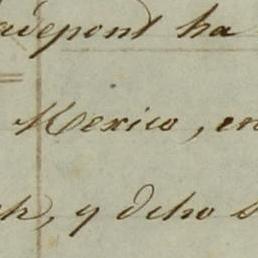 adepont ha
Mexico, en
ch, y dcho s